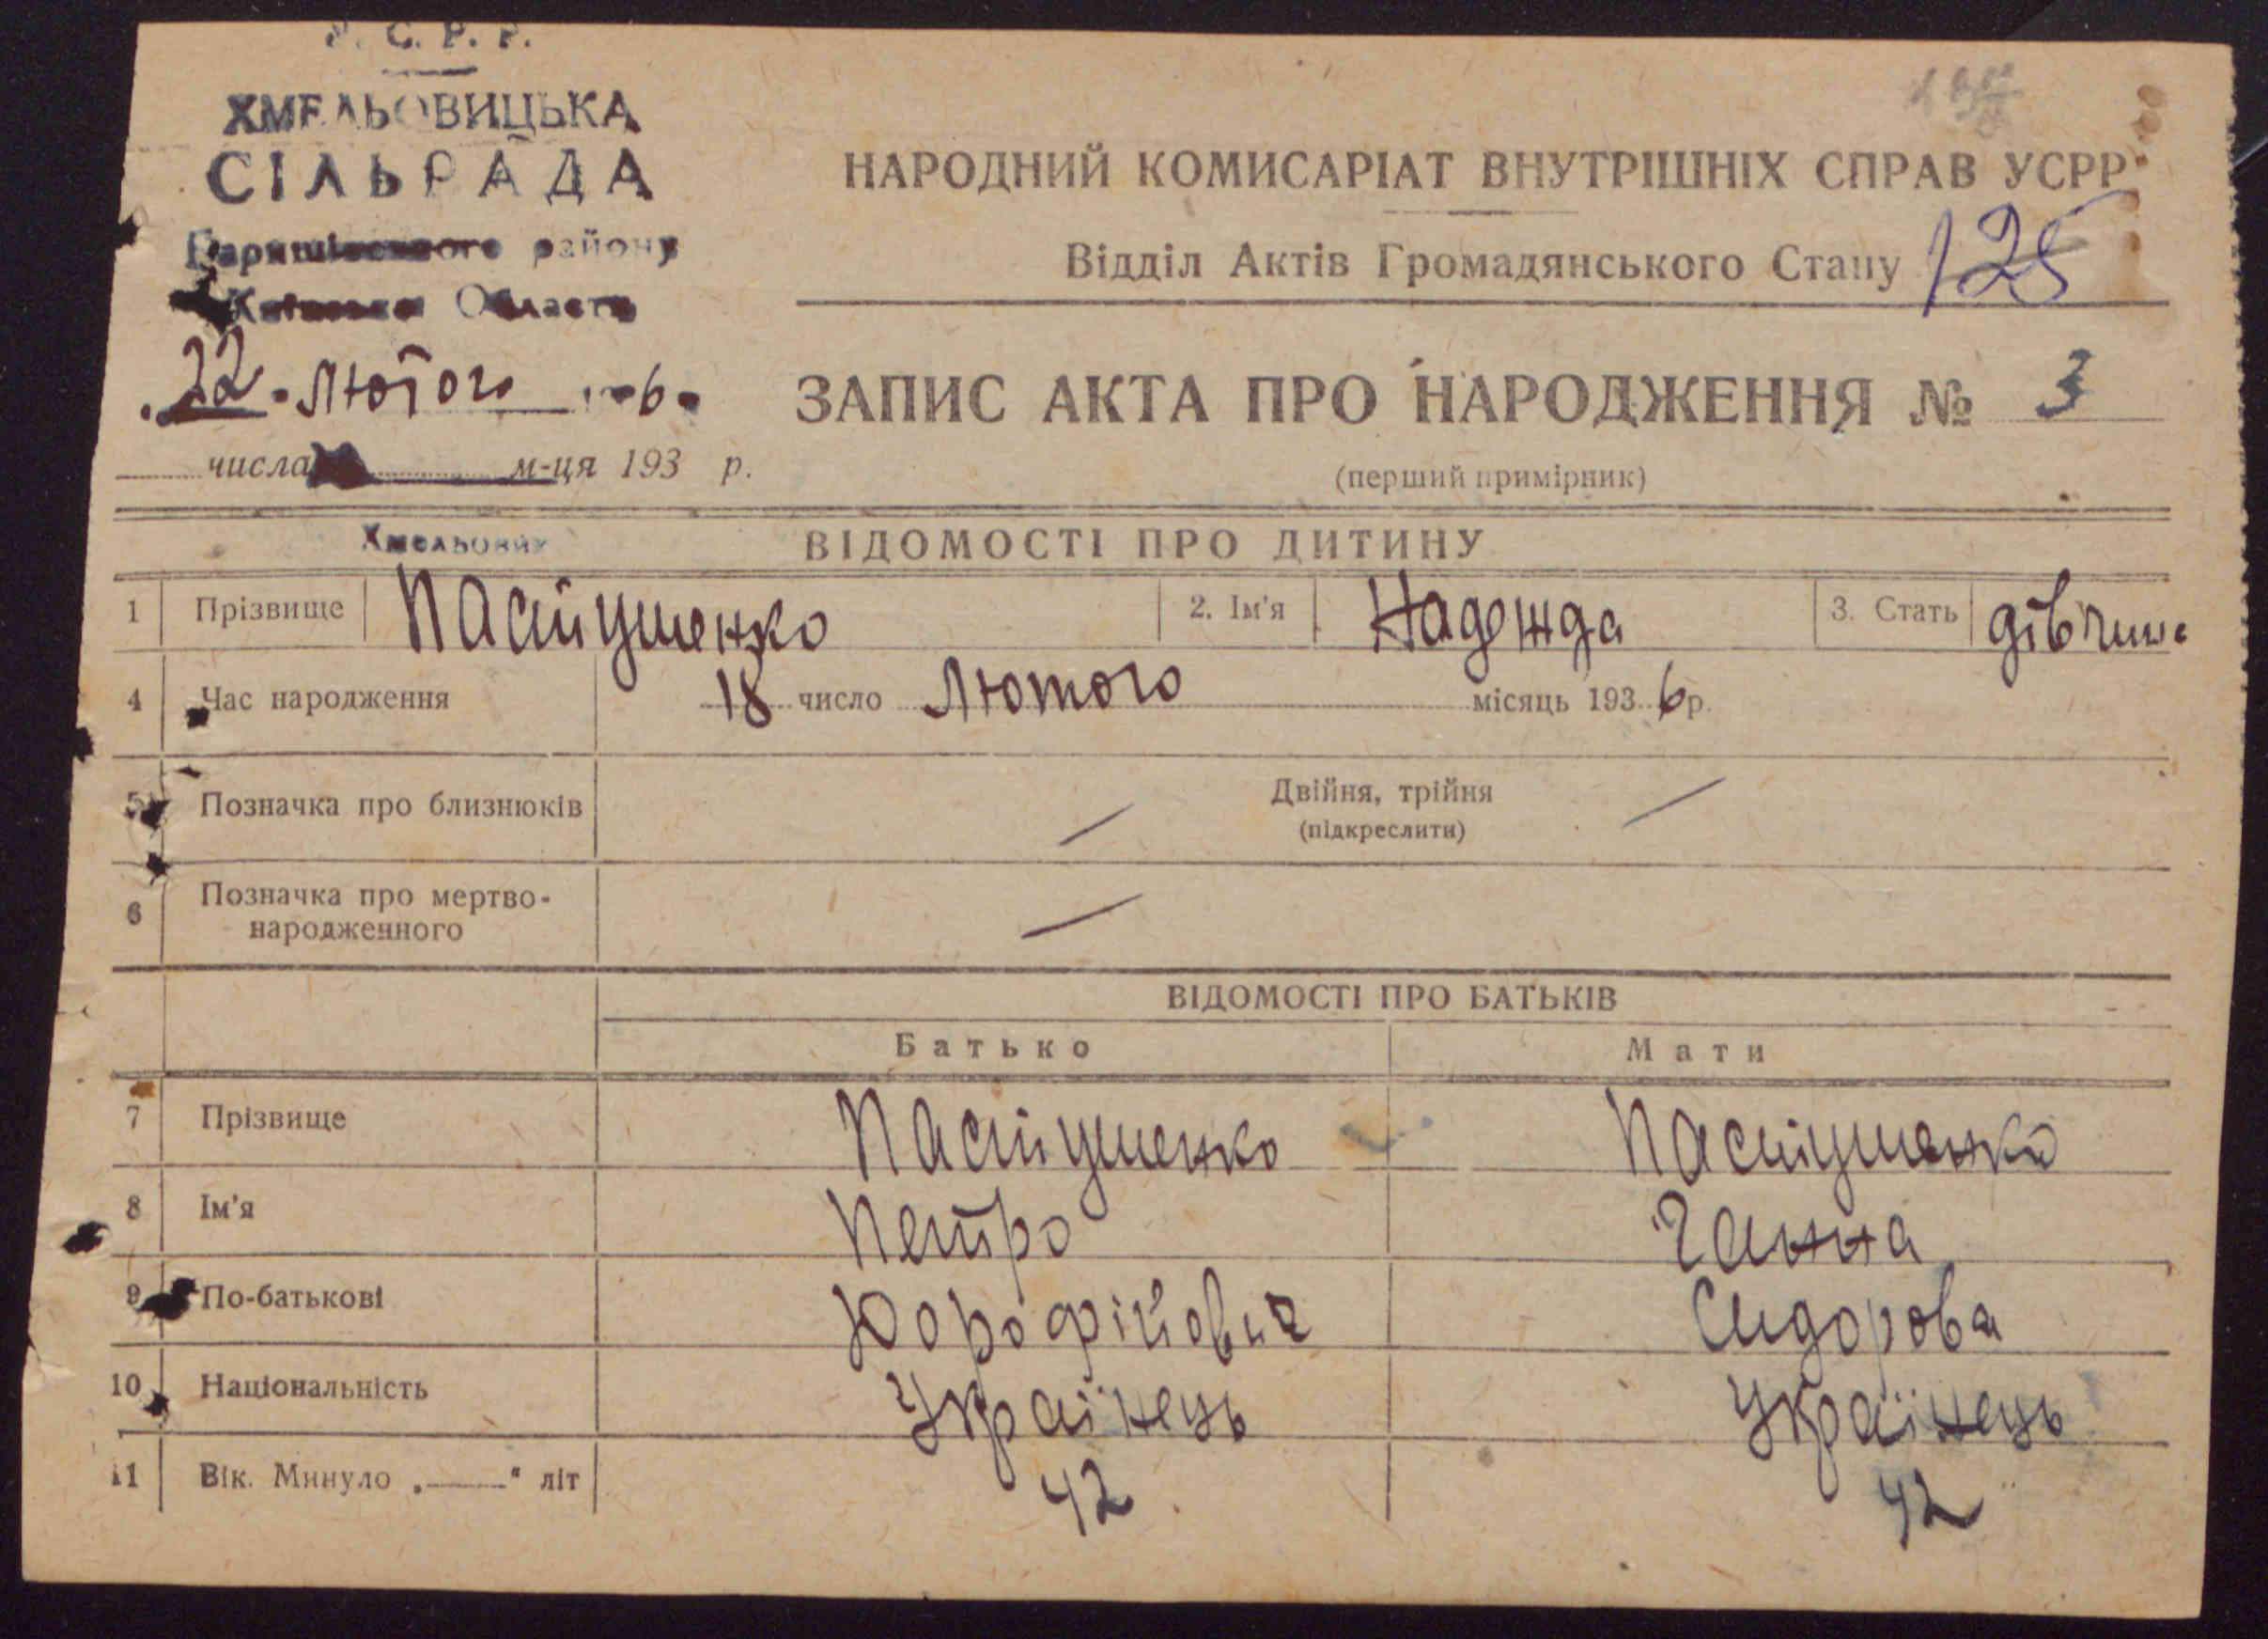 У. С. Р. Р.
ХМЕЛЬОВИЦЬКА
СІЛЬРАДА
району
Області
22 Лютого 6
числа м-ця 193 р.
НАРОДНИЙ КОМИСАРІАТ ВНУТРІШНІХ СПРАВ УСРР
Відділ Актів Громадянського Стану 125
ЗАПИС АКТА ПРО НАРОДЖЕННЯ № 3
(перший примірник)
ВІДОМОСТІ ПРО ДИТИНУ
1 Прізвище Пастушенко 2. Ім'я Надежда 3. Стать дівчина
4 Час народження 18 число Лютого місяць 1936 р.
5 Позначка про близнюків Двійня, трійня
(підкреслити)
6 Позначка про мертво-
народженного
ВІДОМОСТІ ПРО БАТЬКІВ
Батько Мати
7 Прізвище Пастушенко Пастушенко
8 Ім'я Петро Ганна
9 По-батькові Юрофійович Сидорова
10 Національність Українець Українець
11 Вік. Минуло „——“ літ 42 42